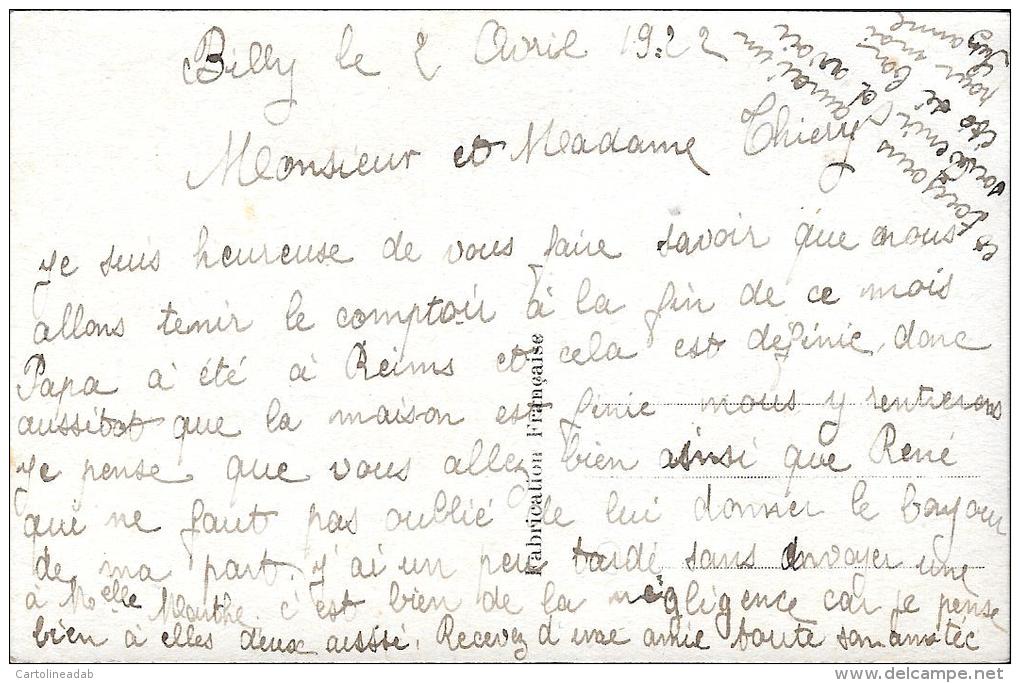 Billy le 2 Avril 1922
Monsieur et Madame Thiery
je suis heureuse de vous faire savoir que nous
allons tenir le comptoir à la fin de ce mois
Papa à été à Reims et cela est definie, donc
aussitot que la maison est finie nous y rentrerons
je pense que vous allez bien ainsi que René
qui ne faut pas oublié de lui donner le bonjour
de ma part. j'ai un peu tardé sans envoyer une
à Melle Marthe. c'est bien de la négligence car je pense
bien à elles deux aussi. Recevez d'une amie toute son amitée
et toujours
souvenirs
pour moi
Suzanne
Fabrication Française
Cartolineadab
delcampe.net